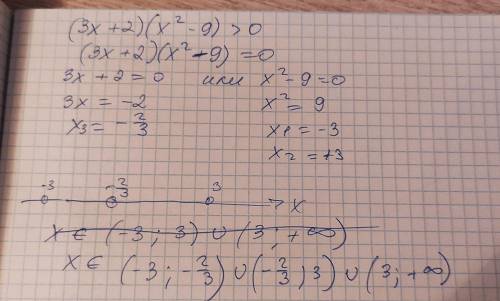 (3x+2)(x² - 9) > 0
(3x+2)(x² - 9) = 0
3x + 2 = 0 или x² - 9 = 0
3x = -2 x² = 9
x₃ = -2/3 x₁ = -3
x₂ = +3
-3 -2/3 3 x
x ∈ (-3; 3) ∪ (3; +∞)
x ∈ (-3; -2/3) ∪ (-2/3; 3) ∪ (3; +∞)